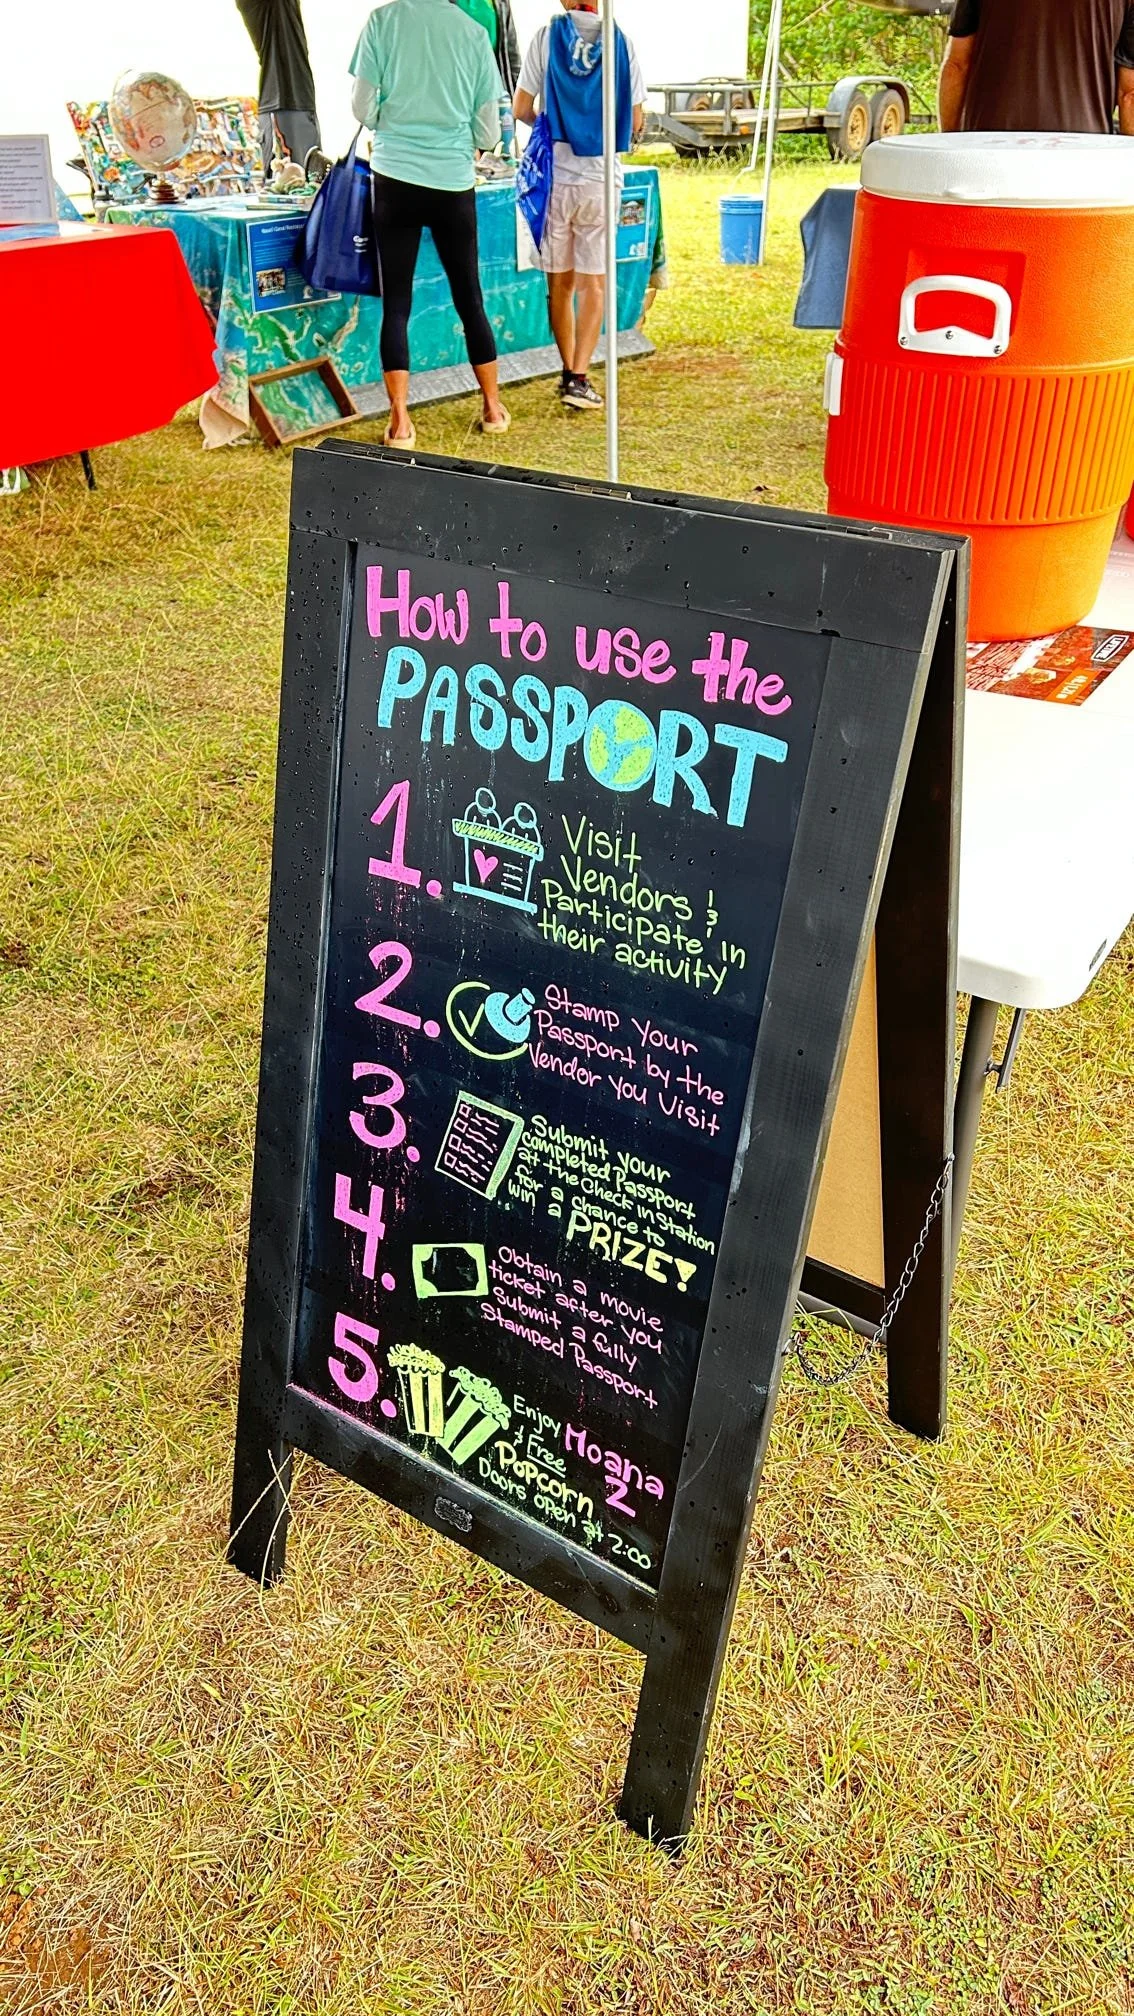 How to use the
PASSPORT
1.
Visit
Vendors &
Participate in
their activity
2.
Stamp your
Passport by the
Vendor you Visit
3.
Submit your
completed Passport
at the Check in Station
for a chance to
win a PRIZE!
4.
Obtain a movie
ticket after you
Submit a fully
Stamped Passport
5.
Enjoy Moana
& Free 2
Popcorn
Doors open at 2:00